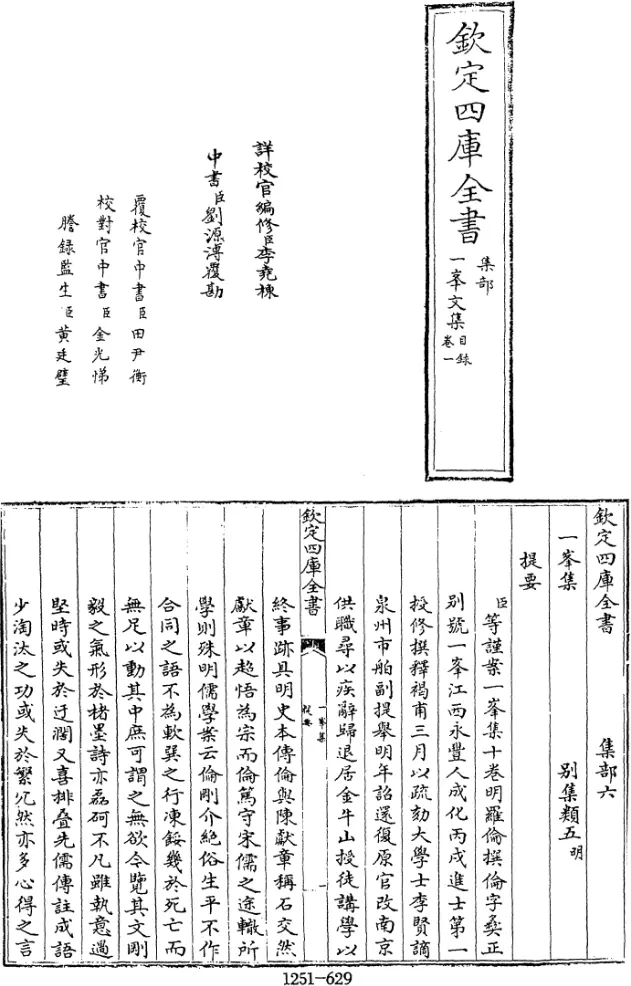 欽定四庫全書
集部
一峯文集
目錄
卷一
詳校官編修臣李堯棟
中書臣劉源溥覆勘
覆校官中書臣田尹衡
校對官中書臣金光悌
謄錄監生臣黃廷璧
欽定四庫全書 集部六
一峯集 別集類五明
提要
臣等謹案一峯集十卷明羅倫撰倫字彝正
別號一峯江西永豐人成化丙戌進士第一
授修撰釋褐甫三月以疏劾大學士李賢謫
泉州市舶副提舉明年詔還復原官改南京
供職尋以疾辭歸退居金牛山授徒講學以
欽定四庫全書
一峯集
提要
終事跡具明史本傳倫與陳獻章稱石交然
獻章以超悟為宗而倫篤守宋儒之途轍所
學則殊明儒學案云倫剛介絶俗生平不作
合同之語不為軟巽之行凍餒幾於死亡而
無足以動其中庶可謂之無欲今覽其文剛
毅之氣形於楮墨詩亦磊砢不凡雖執意過
堅時或失於迂濶又喜排疊先儒傳註成語
少淘汰之功或失於繁冗然亦多心得之言
1251-629